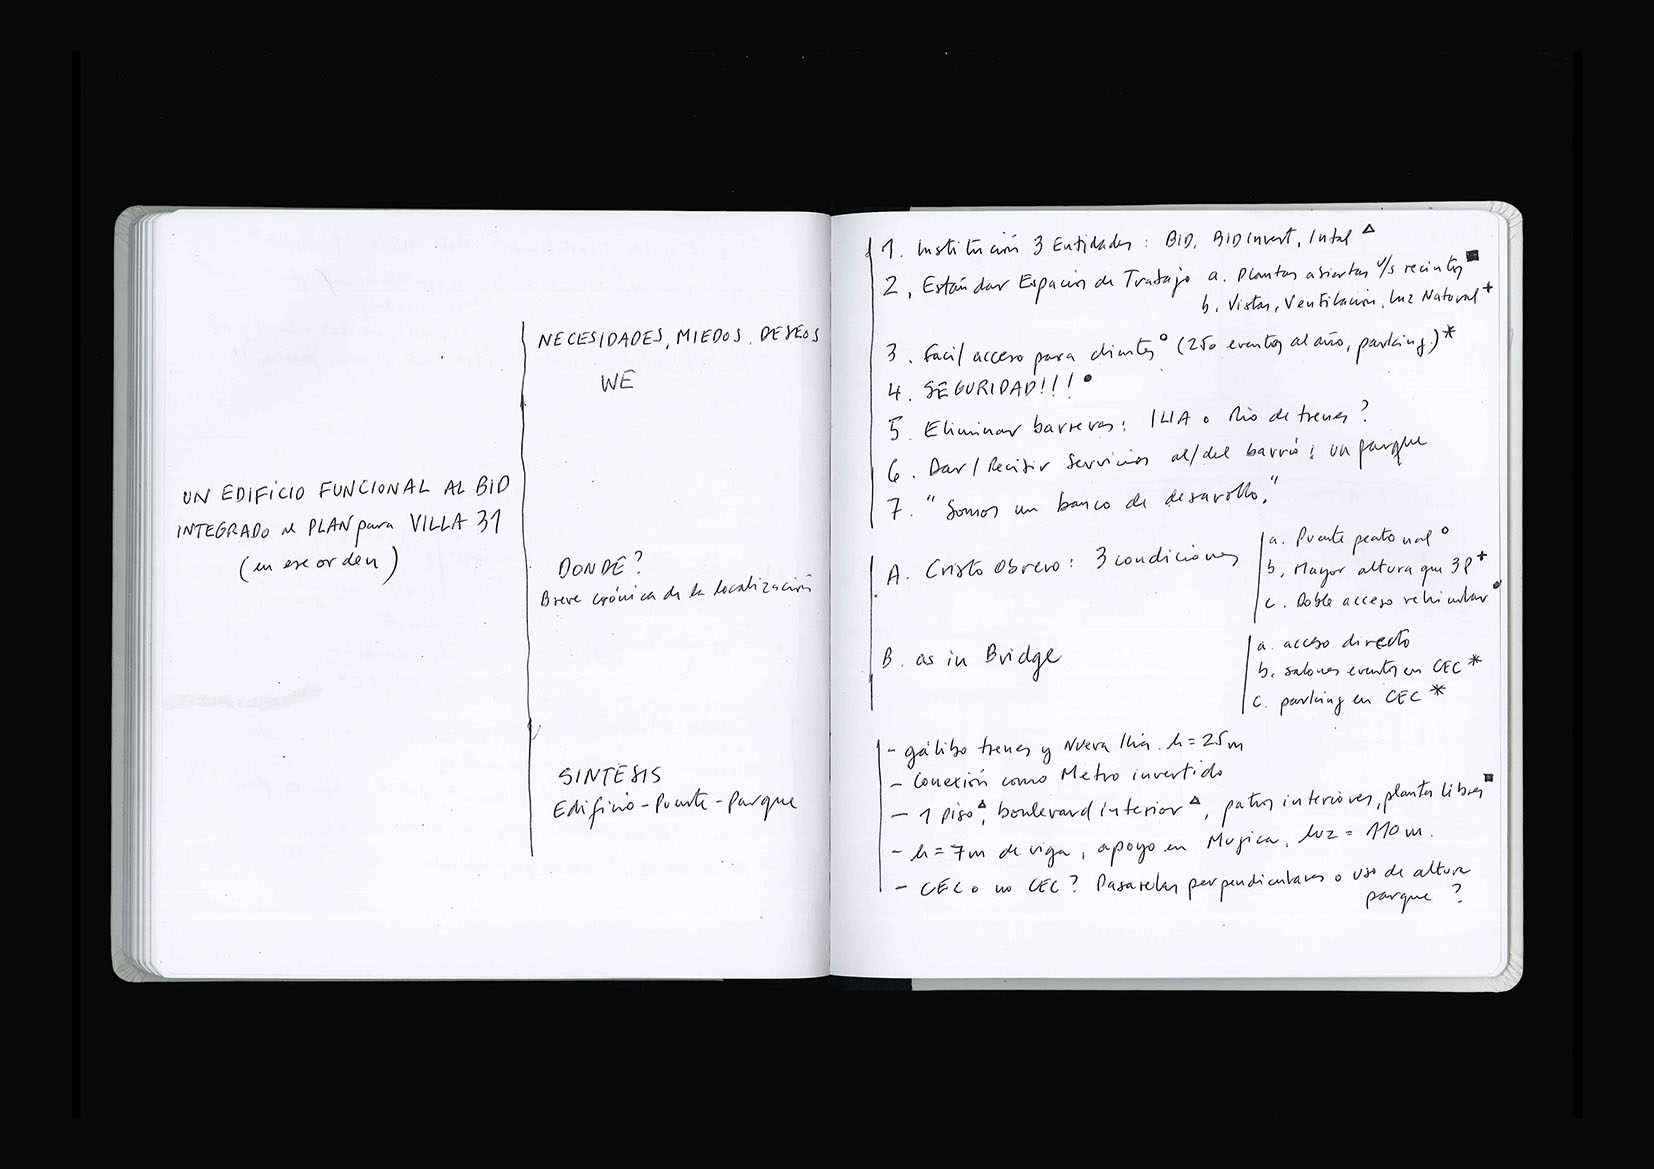 UN EDIFICIO FUNCIONAL AL BID
INTEGRADO al PLAN para VILLA 31
(en ese orden)
NECESIDADES, MIEDOS, DESEOS
WE
DONDE?
Breve crónica de la localización
SINTESIS
Edificio-Puente-Parque
1. Institución 3 Entidades: BID, BID Invest, Intal △
2. Estándar Espacios de Trabajo a. Plantas abiertas v/s recintos ■
b. Vistas, Ventilación, Luz Natural +
3. Facil acceso para clientes ° (250 eventos al año, parking.) *
4. SEGURIDAD!!! •
5. Eliminar barreras: ILIA o Rio de trenes?
6. Dar/Recibir Servicios al/del barrio: un parque
7. "Somos un banco de desarollo."
A. Cristo Obrero: 3 condiciones
a. Puente peatonal °
b. Mayor altura que 3P +
c. Doble acceso vehicular •
B. as in Bridge
a. acceso directo
b. salones eventos en CEC *
c. parking en CEC *
- gálibo trenes y Nueva Ilia. h=25m
- Conexión como Metro invertido
- 1 Piso △, boulevard interior △, patios interiores, plantas libres ■
- h=7m de viga, apoyo en Mugica, luz = 110m.
- CEC o no CEC? Pasarelas perpendiculares o uso de altura
parque?